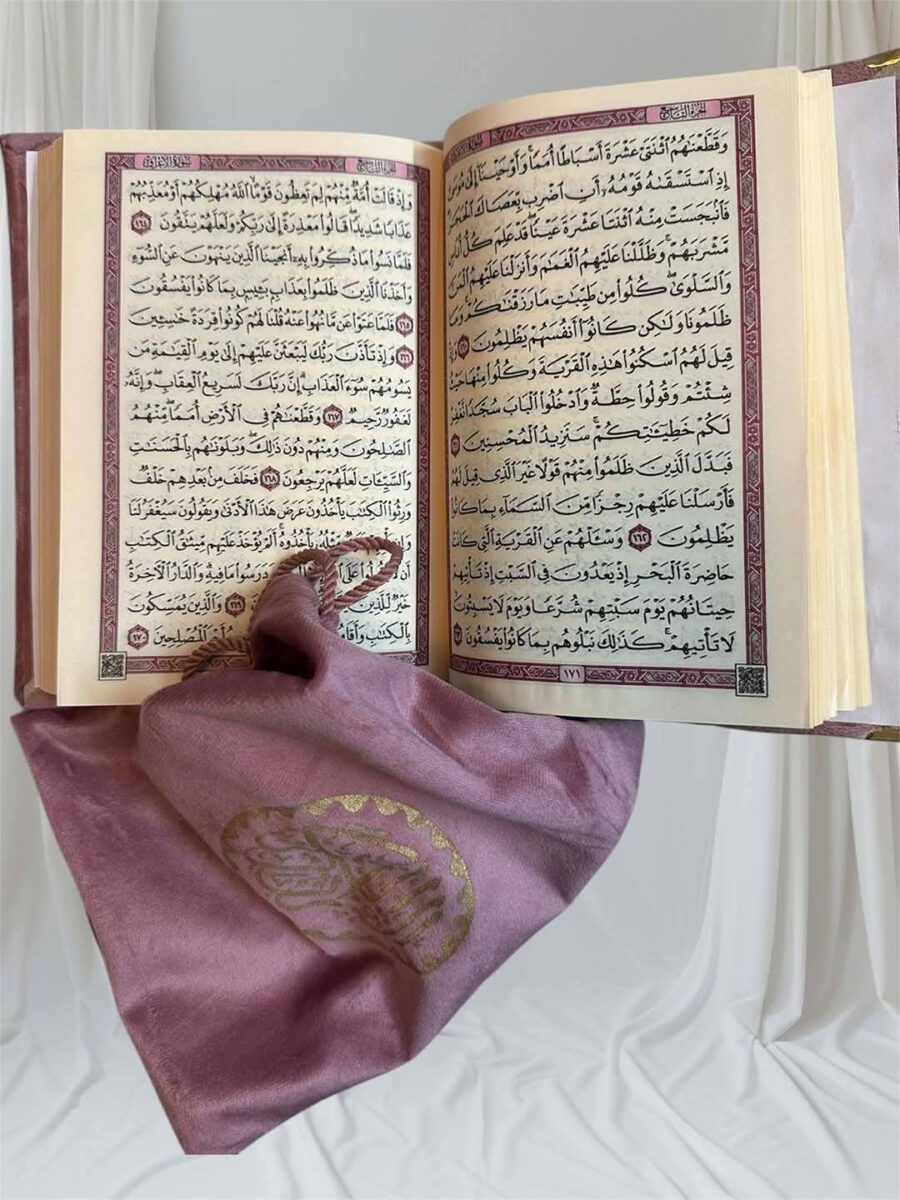 الجزء التاسع
وَقَطَّعْنَٰهُمُ ٱثْنَتَىْ عَشْرَةَ أَسْبَاطًا أُمَمًا ۚ وَأَوْحَيْنَآ إِلَىٰ مُوسَىٰٓ
إِذِ ٱسْتَسْقَىٰهُ قَوْمُهُۥٓ أَنِ ٱضْرِب بِّعَصَاكَ ٱلْحَجَرَ ۖ
فَٱنۢبَجَسَتْ مِنْهُ ٱثْنَتَا عَشْرَةَ عَيْنًا ۖ قَدْ عَلِمَ كُلُّ أُنَاسٍ
مَّشْرَبَهُمْ ۚ وَظَلَّلْنَا عَلَيْهِمُ ٱلْغَمَٰمَ وَأَنزَلْنَا عَلَيْهِمُ ٱلْمَنَّ
وَٱلسَّلْوَىٰ ۖ كُلُوا۟ مِن طَيِّبَٰتِ مَا رَزَقْنَٰكُمْ ۚ وَمَا
ظَلَمُونَا وَلَٰكِن كَانُوٓا۟ أَنفُسَهُمْ يَظْلِمُونَ ١٦٠ وَإِذْ
قِيلَ لَهُمُ ٱسْكُنُوا۟ هَٰذِهِ ٱلْقَرْيَةَ وَكُلُوا۟ مِنْهَا حَيْثُ
شِئْتُمْ وَقُولُوا۟ حِطَّةٌ وَٱدْخُلُوا۟ ٱلْبَابَ سُجَّدًا نَّغْفِرْ
لَكُمْ خَطِيٓـَٰٔتِكُمْ ۚ سَنَزِيدُ ٱلْمُحْسِنِينَ ١٦١
فَبَدَّلَ ٱلَّذِينَ ظَلَمُوا۟ مِنْهُمْ قَوْلًا غَيْرَ ٱلَّذِى قِيلَ لَهُمْ
فَأَرْسَلْنَا عَلَيْهِمْ رِجْزًا مِّنَ ٱلسَّمَآءِ بِمَا كَانُوا۟
يَظْلِمُونَ ١٦٢ وَسْـَٔلْهُمْ عَنِ ٱلْقَرْيَةِ ٱلَّتِى كَانَتْ
حَاضِرَةَ ٱلْبَحْرِ إِذْ يَعْدُونَ فِى ٱلسَّبْتِ إِذْ تَأْتِيهِمْ
حِيتَانُهُمْ يَوْمَ سَبْتِهِمْ شُرَّعًا وَيَوْمَ لَا يَسْبِتُونَ ۙ
لَا تَأْتِيهِمْ ۚ كَذَٰلِكَ نَبْلُوهُم بِمَا كَانُوا۟ يَفْسُقُونَ ١٦٣
١٧١
الجزء التاسع سورة الأعراف
وَإِذْ قَالَتْ أُمَّةٌ مِّنْهُمْ لِمَ تَعِظُونَ قَوْمًا ۙ ٱللَّهُ مُهْلِكُهُمْ أَوْ مُعَذِّبُهُمْ
عَذَابًا شَدِيدًا ۖ قَالُوا۟ مَعْذِرَةً إِلَىٰ رَبِّكُمْ وَلَعَلَّهُمْ يَتَّقُونَ ١٦٤
فَلَمَّا نَسُوا۟ مَا ذُكِّرُوا۟ بِهِۦٓ أَنجَيْنَا ٱلَّذِينَ يَنْهَوْنَ عَنِ ٱلسُّوٓءِ
وَأَخَذْنَا ٱلَّذِينَ ظَلَمُوا۟ بِعَذَابٍۭ بَـِٔيسٍۭ بِمَا كَانُوا۟ يَفْسُقُونَ
١٦٥ فَلَمَّا عَتَوْا۟ عَن مَّا نُهُوا۟ عَنْهُ قُلْنَا لَهُمْ كُونُوا۟ قِرَدَةً خَٰسِـِٔينَ
١٦٦ وَإِذْ تَأَذَّنَ رَبُّكَ لَيَبْعَثَنَّ عَلَيْهِمْ إِلَىٰ يَوْمِ ٱلْقِيَٰمَةِ مَن
يَسُومُهُمْ سُوٓءَ ٱلْعَذَابِ ۗ إِنَّ رَبَّكَ لَسَرِيعُ ٱلْعِقَابِ ۖ وَإِنَّهُۥ
لَغَفُورٌ رَّحِيمٌ ١٦٧ وَقَطَّعْنَٰهُمْ فِى ٱلْأَرْضِ أُمَمًا ۖ مِّنْهُمُ
ٱلصَّٰلِحُونَ وَمِنْهُمْ دُونَ ذَٰلِكَ ۖ وَبَلَوْنَٰهُم بِٱلْحَسَنَٰتِ
وَٱلسَّيِّـَٔاتِ لَعَلَّهُمْ يَرْجِعُونَ ١٦٨ فَخَلَفَ مِنۢ بَعْدِهِمْ خَلْفٌ
وَرِثُوا۟ ٱلْكِتَٰبَ يَأْخُذُونَ عَرَضَ هَٰذَا ٱلْأَدْنَىٰ وَيَقُولُونَ سَيُغْفَرُ لَنَا
وَإِن مِّثْلُهُۥ يَأْخُذُوهُ ۚ أَلَمْ يُؤْخَذْ عَلَيْهِم مِّيثَٰقُ ٱلْكِتَٰبِ
أَن عَلَى دَرَسُوا۟ مَا فِيهِ ۗ وَٱلدَّارُ ٱلْءَاخِرَةُ
خَيْرٌ لِّلَّذِينَ ١٦٩ وَٱلَّذِينَ يُمَسِّكُونَ
بِٱلْكِتَٰبِ وَأَقَامُوا۟ ٱلْمُصْلِحِينَ ١٧٠